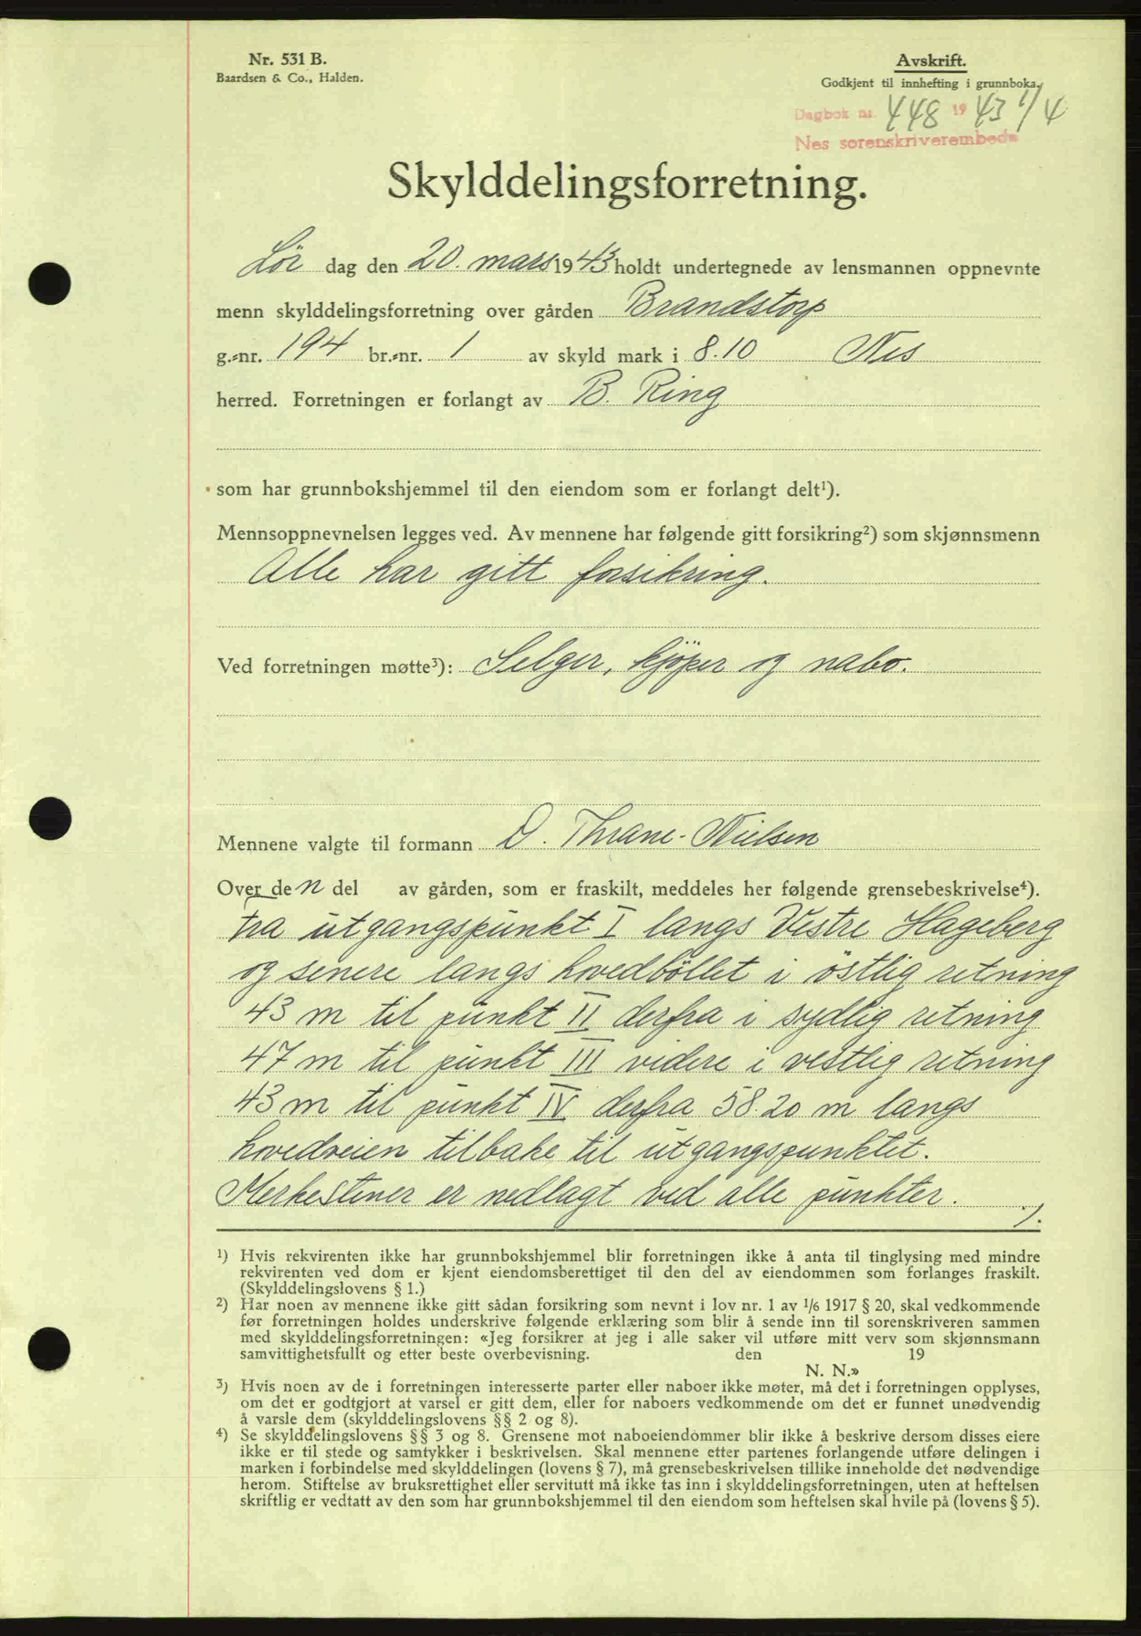 Nr. 531 B.
Baardsen & Co., Halden.
Avskrift.
Godkjent til innhefting i grunnboka.
Dagbok nr. 448 1943 1/4
Nes sorenskriverembede
Skylddelingsforretning.
Lör dag den 20. mars 1943 holdt undertegnede av lensmannen oppnevnte
menn skylddelingsforretning over gården Brandstorp
g.-nr. 194 br.-nr. 1 av skyld mark i 8.10 Nes
herred. Forretningen er forlangt av B. Ring
som har grunnbokshjemmel til den eiendom som er forlangt delt¹).
Mennsoppnevnelsen legges ved. Av mennene har følgende gitt forsikring²) som skjønnsmenn
Alle har gitt forsikring.
Ved forretningen møtte³): Selger, kjöper og nabo.
Mennene valgte til formann O. Thrane-Nielsen
Over den del av gården, som er fraskilt, meddeles her følgende grensebeskrivelse⁴).
Fra utgangspunkt I langs Vestre Hageberg
og senere langs hovedböllet i östlig retning
43 m til punkt II derfra i sydlig retning
47 m til punkt III videre i vestlig retning
43 m til punkt IV derfra 58.20 m langs
hovedveien tilbake til utgangspunktet.
Merkestener er nedlagt ved alle punkter. ./.
¹) Hvis rekvirenten ikke har grunnbokshjemmel blir forretningen ikke å anta til tinglysing med mindre
rekvirenten ved dom er kjent eiendomsberettiget til den del av eiendommen som forlanges fraskilt.
(Skylddelingslovens § 1.)
²) Har noen av mennene ikke gitt sådan forsikring som nevnt i lov nr. 1 av 1/6 1917 § 20, skal vedkommende
før forretningen holdes underskrive følgende erklæring som blir å sende inn til sorenskriveren sammen
med skylddelingsforretningen: «Jeg forsikrer at jeg i alle saker vil utføre mitt verv som skjønnsmann
samvittighetsfullt og etter beste overbevisning. den 19
N. N.»
³) Hvis noen av de i forretningen interesserte parter eller naboer ikke møter, må det i forretningen opplyses,
om det er godtgjort at varsel er gitt dem, eller for naboers vedkommende om det er funnet unødvendig
å varsle dem (skylddelingslovens §§ 2 og 8).
⁴) Se skylddelingslovens §§ 3 og 8. Grensene mot naboeiendommer blir ikke å beskrive dersom disses eiere
ikke er til stede og samtykker i beskrivelsen. Skal mennene etter partenes forlangende utføre delingen i
marken i forbindelse med skylddelingen (lovens § 7), må grensebeskrivelsen tillike inneholde det nødvendige
herom. Stiftelse av bruksrettighet eller servitutt må ikke tas inn i skylddelingsforretningen, uten at heftelsen
skriftlig er vedtatt av den som har grunnbokshjemmel til den eiendom som heftelsen skal hvile på (lovens § 5).